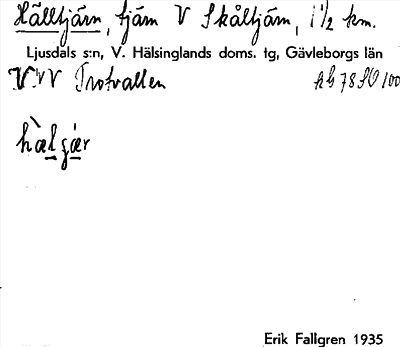 Hälltjärn, tjärn V Skåltjärn, 1 1/2 km.
Ljusdals s:n, V. Hälsinglands doms. tg, Gävleborgs län
V Trotvallen
hæ̀lʒær
Erik Fallgren 1935